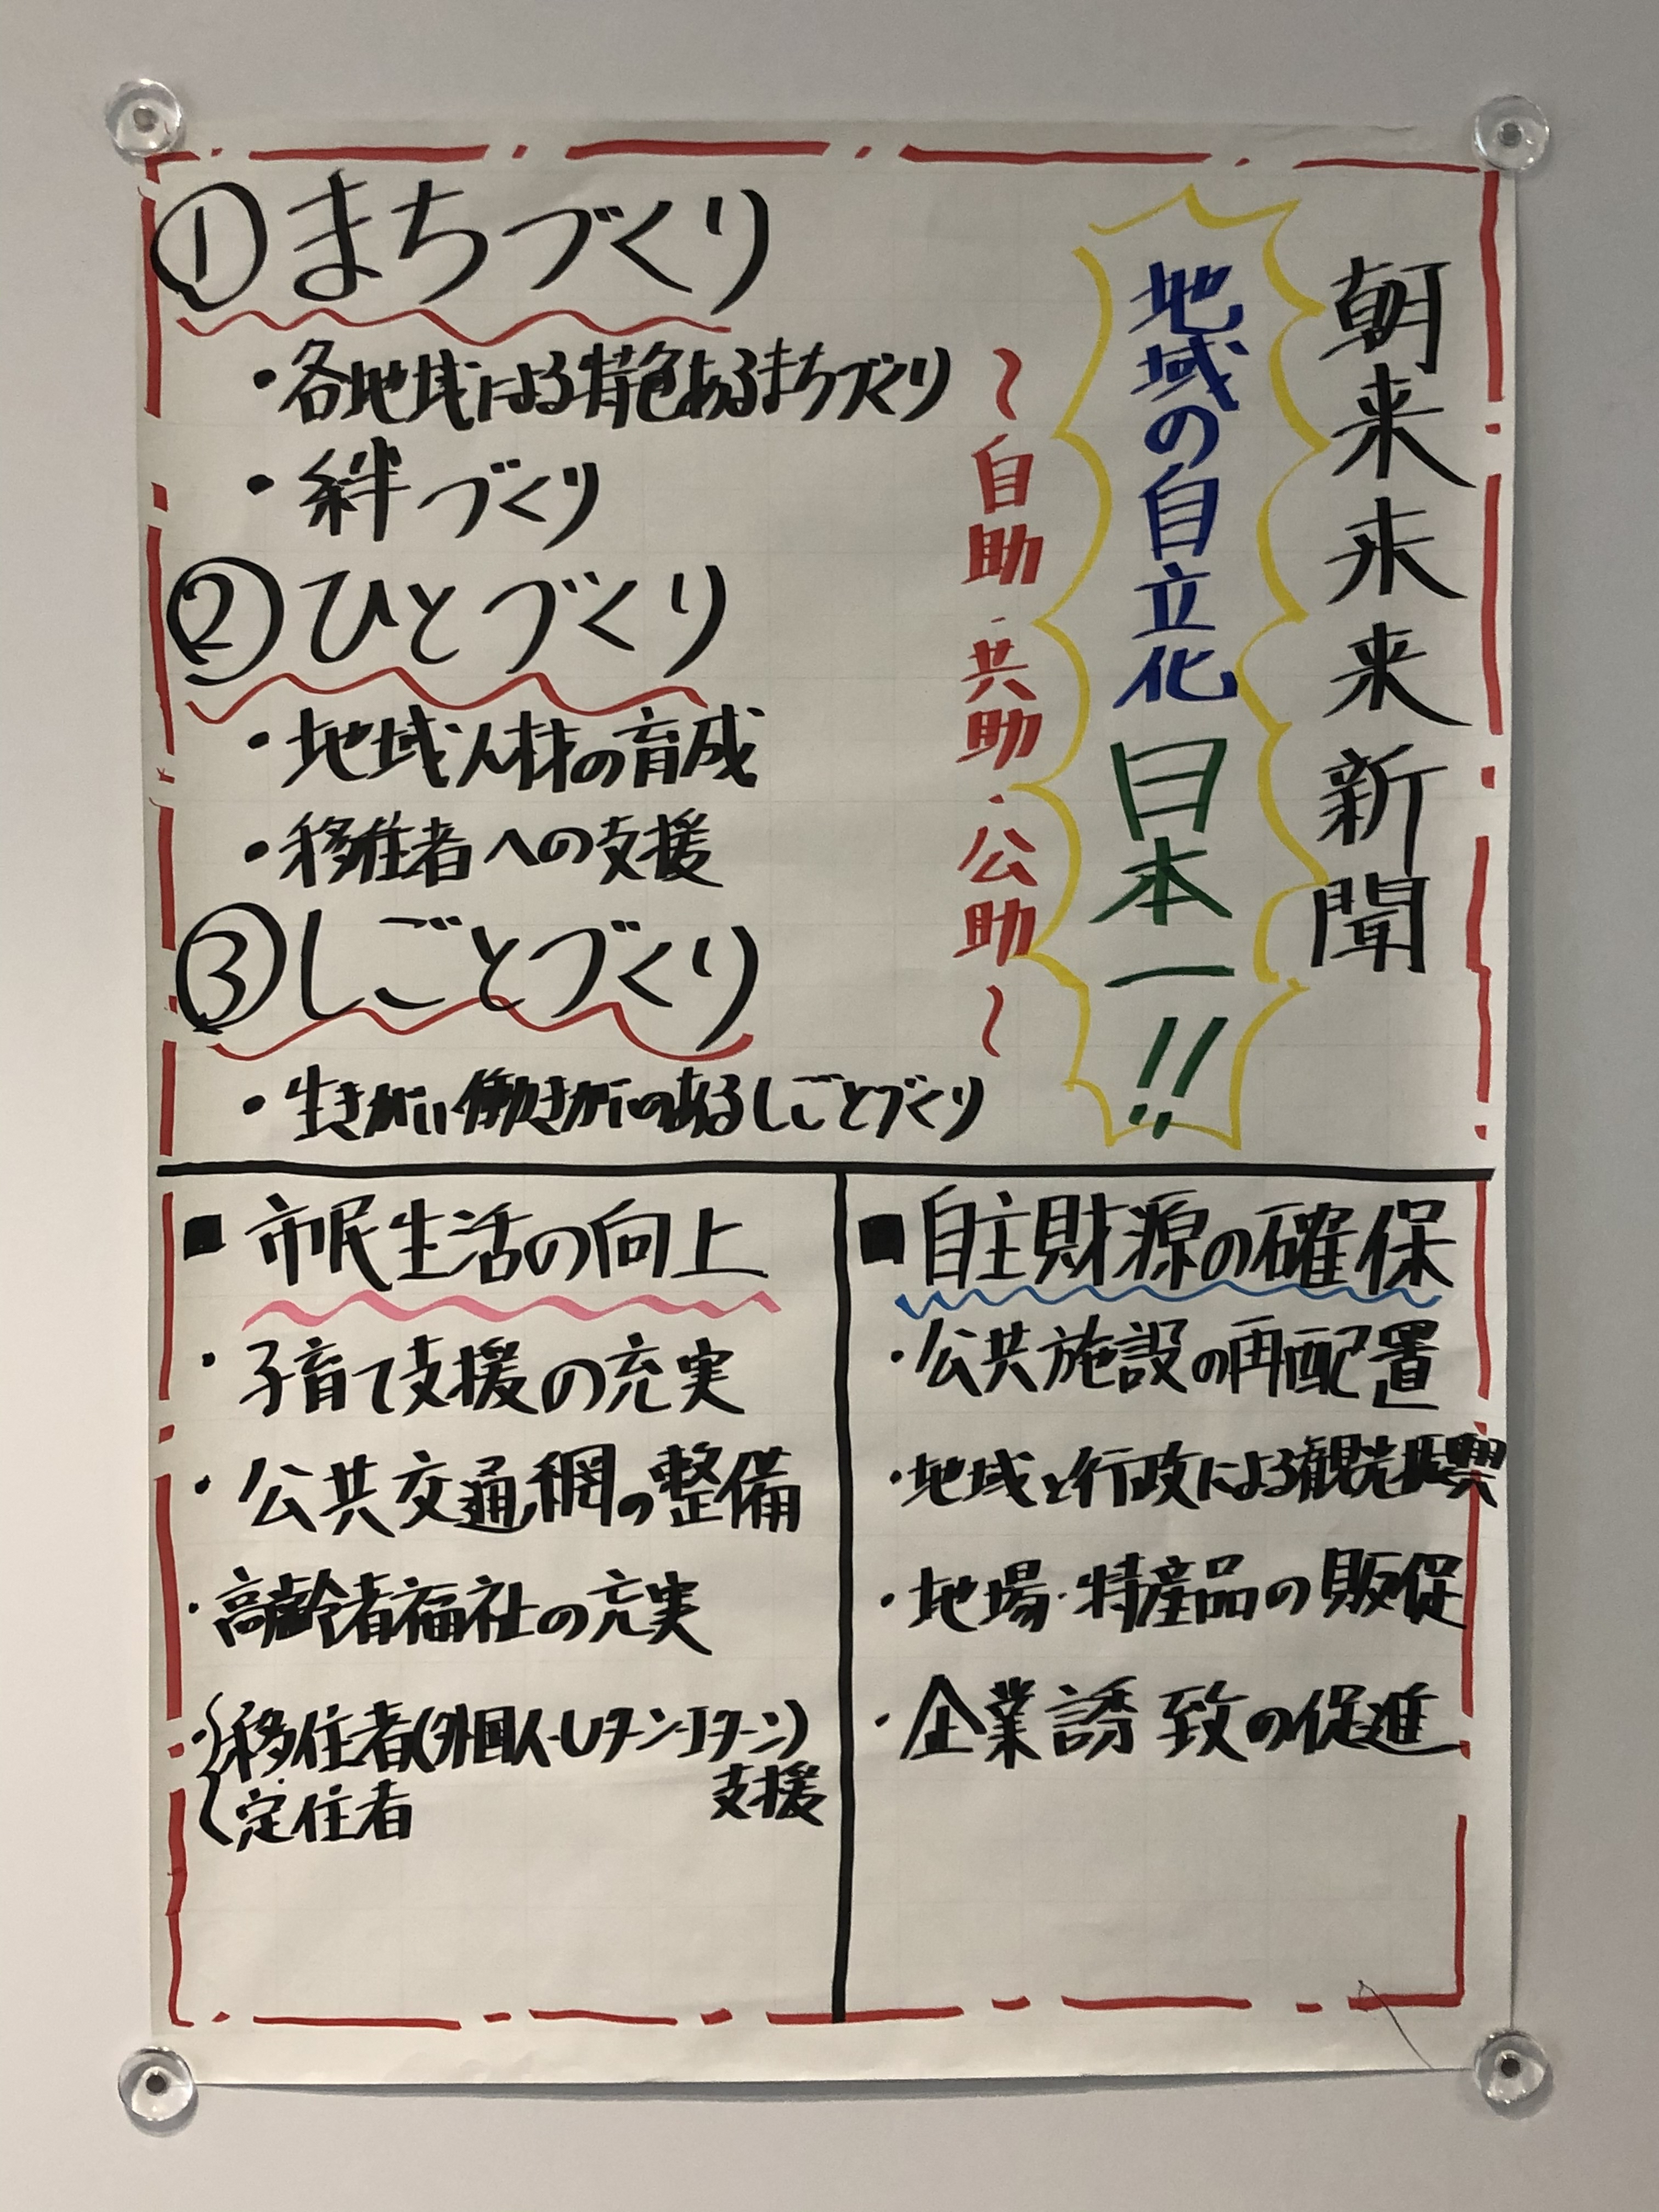 朝来未来新聞
地域の自立化 日本一!!
〜自助・共助・公助〜
①まちづくり
・各地域による特色あるまちづくり
・絆づくり
②ひとづくり
・地域人材の育成
・移住者への支援
③しごとづくり
・生きがい働きがいのあるしごとづくり
■自主財源の確保
・公共施設の再配置
・地域と行政による観光振興
・地場・特産品の販促
・企業誘致の促進
■市民生活の向上
・子育て支援の充実
・公共交通網の整備
・高齢者福祉の充実
・移住者(外国人・Uターン・Iターン)
定住者 支援